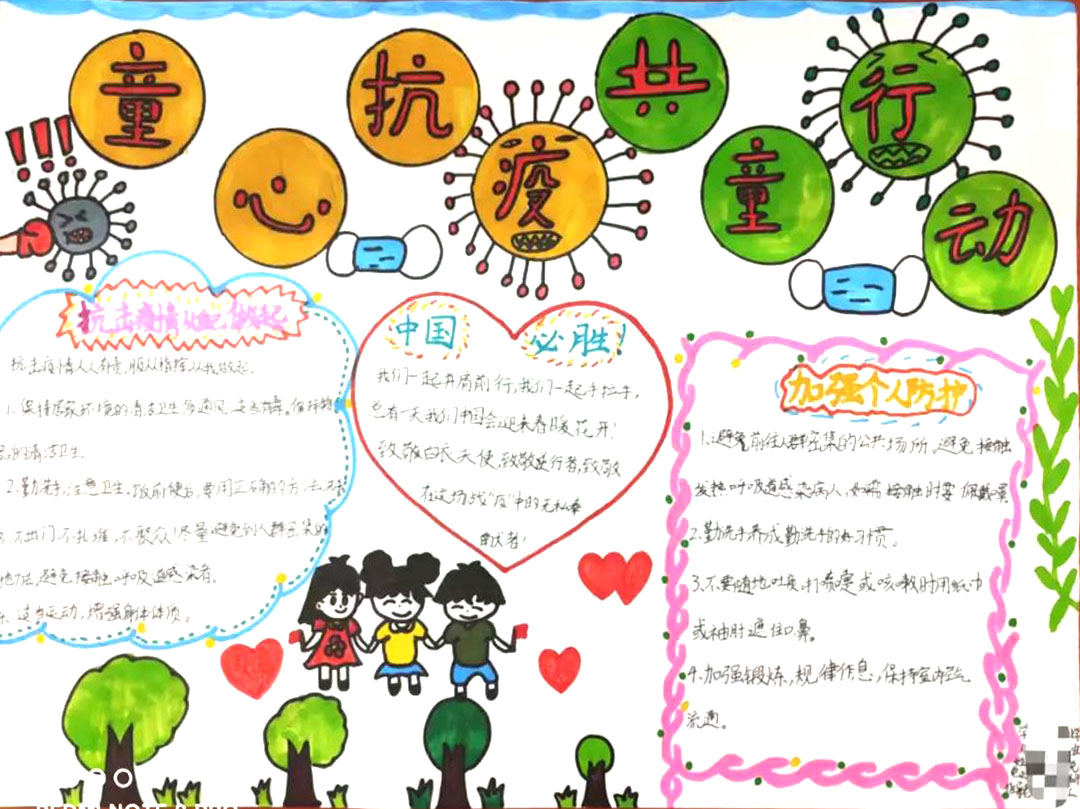 童心抗疫共童行动
抗击疫情从我做起
抗击疫情人人有责,服从指挥,从我做起。
1.保持居家环境的清洁卫生多通风
的清洁卫生
2.勤洗手,注意卫生,饭前便后,要用正确的方法洗手
不出门不扎堆,不聚众!尽量避免到人群密集的
地方,避免接触呼吸道感染者。
适当运动,增强身体体质。
中国 必胜!
我们一起并肩前行,我们一起手拉手,
总有一天我们中国会迎来春暖花开!
致敬白衣天使,致敬逆行者,致敬
在这场战"疫"中的无私奉
献者!
加强个人防护
1.避免前往人群密集的公共场所,避免接触
发热呼吸道感染病人,如需接触时要佩戴口罩
2.勤洗手养成勤洗手的好习惯。
3.不要随地吐痰,打喷嚏或咳嗽时用纸巾
或袖肘遮住口鼻。
4.加强锻炼,规律作息,保持室内空气
流通。
REDMI NOTE 8 PRO